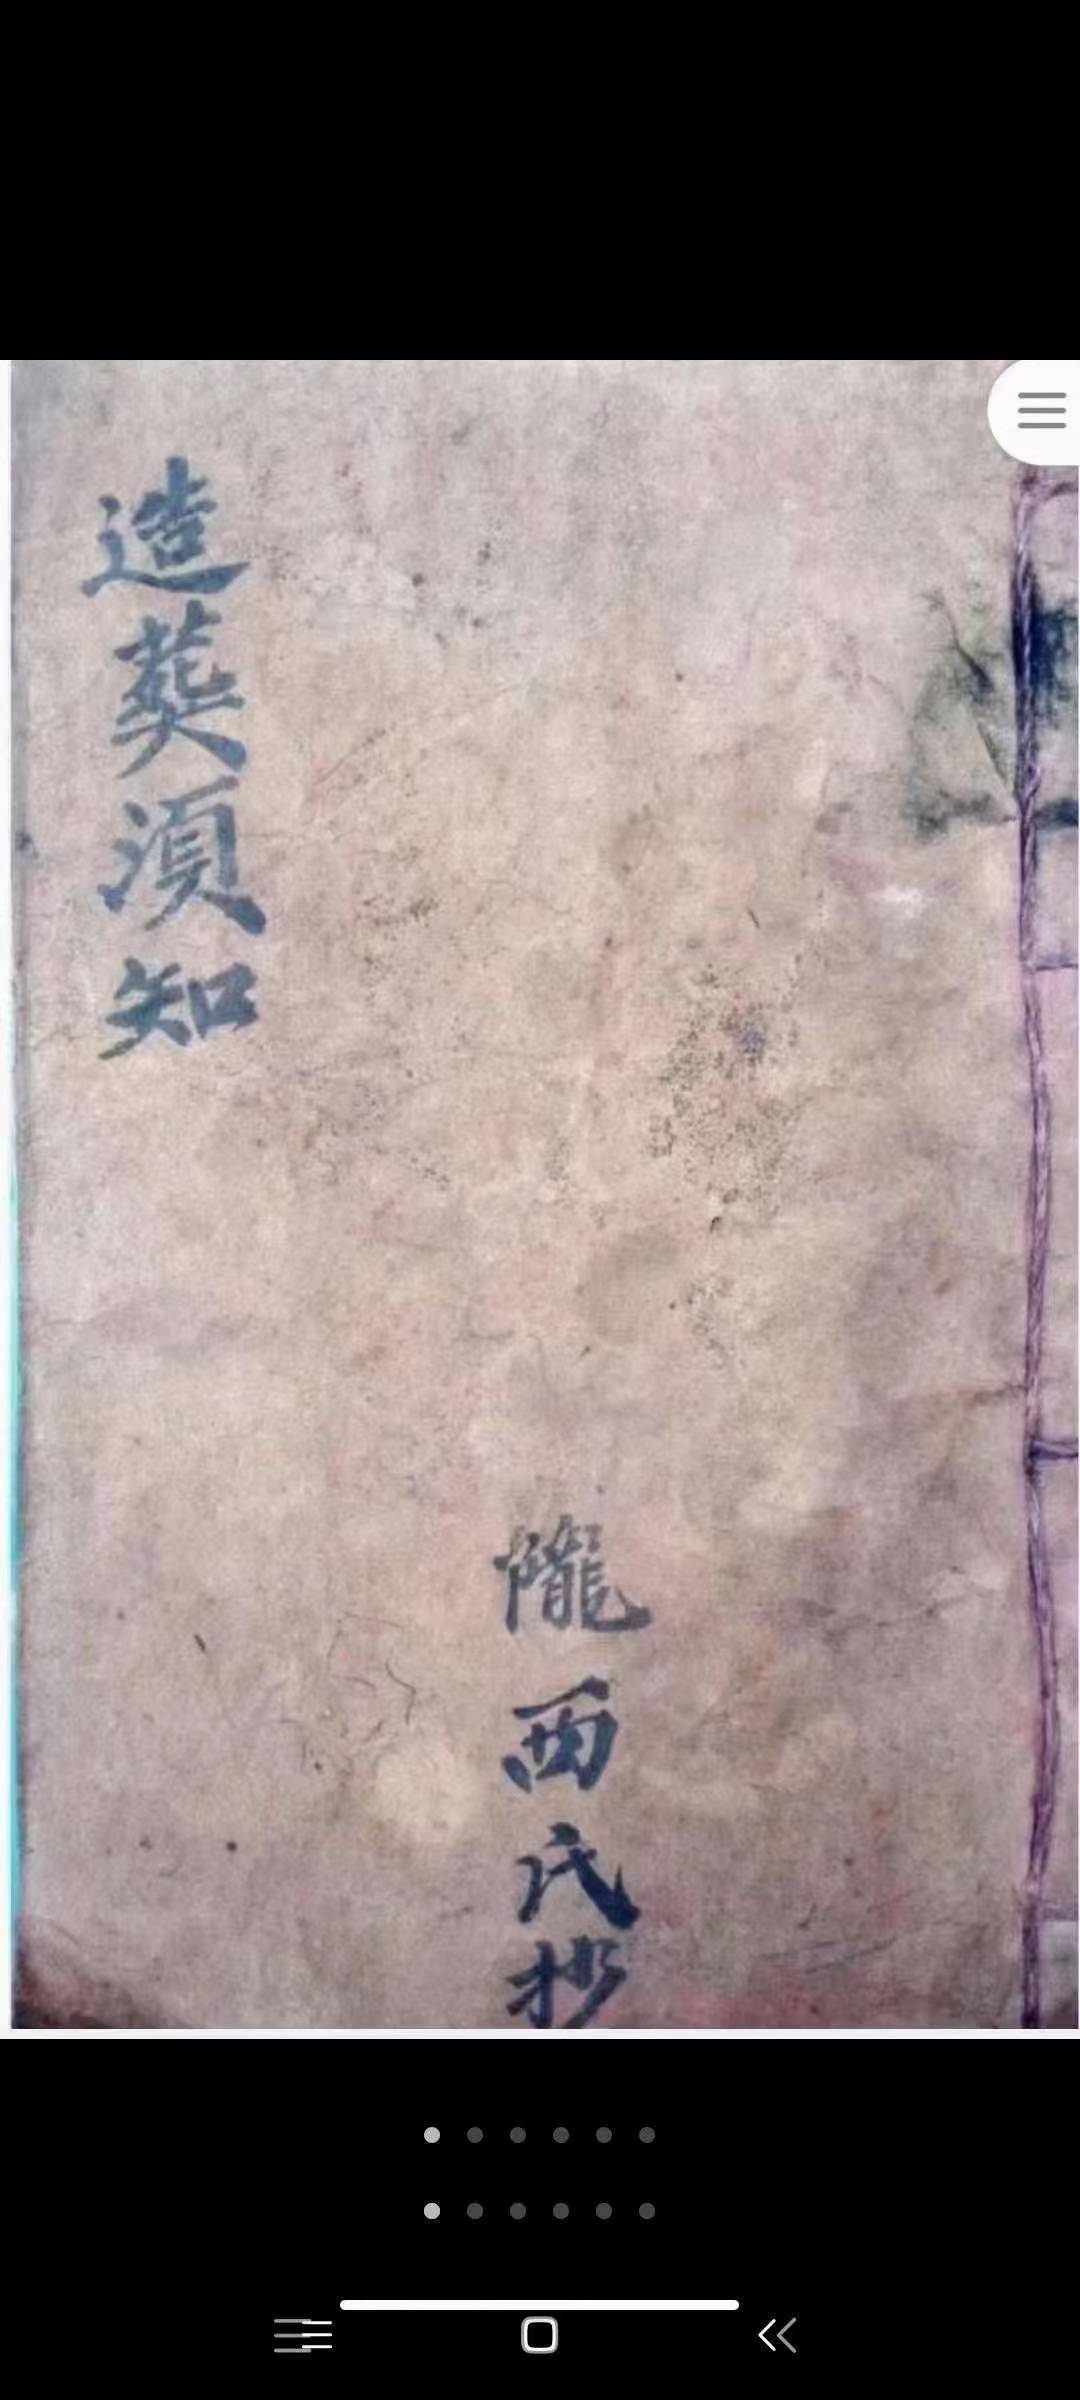 造葬湏知
隴西氏抄